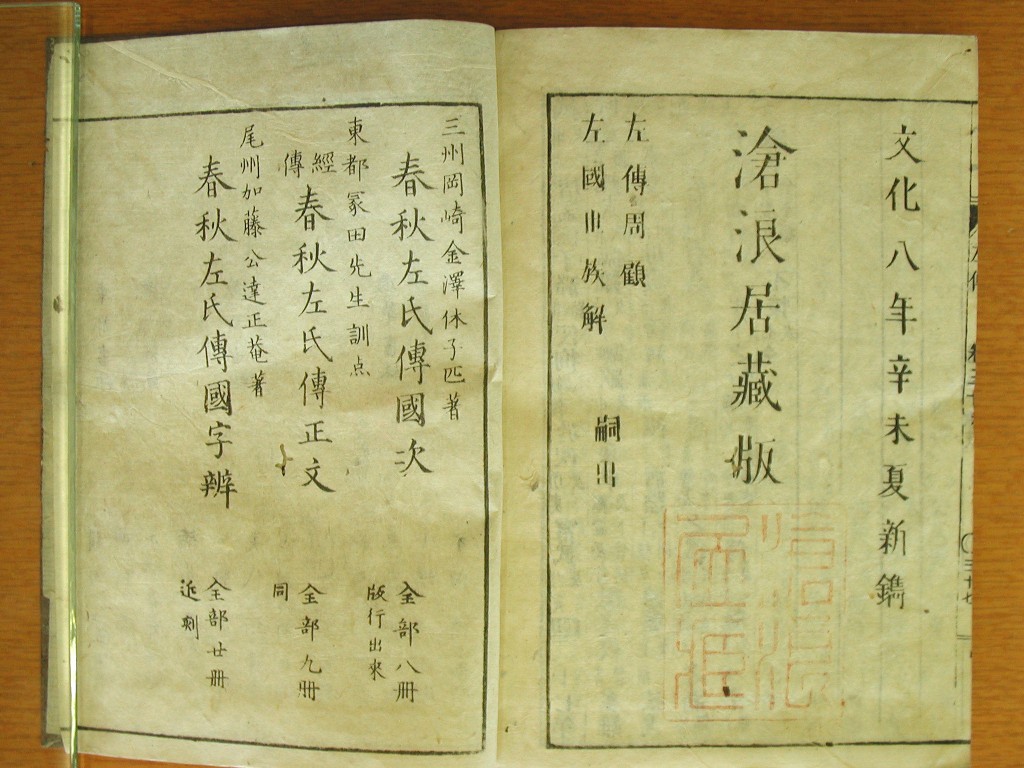 文化八年辛未夏新鐫
滄浪居藏版
左傳周觀
左國世族解
嗣出
三州岡崎金澤休子匹著
春秋左氏傳國次
全部八冊
版行出來
東都冢田先生訓点
經傳
春秋左氏傳正文
全部九冊
同
尾州加藤公達正菴著
春秋左氏傳國字辨
全部廿冊
近刻